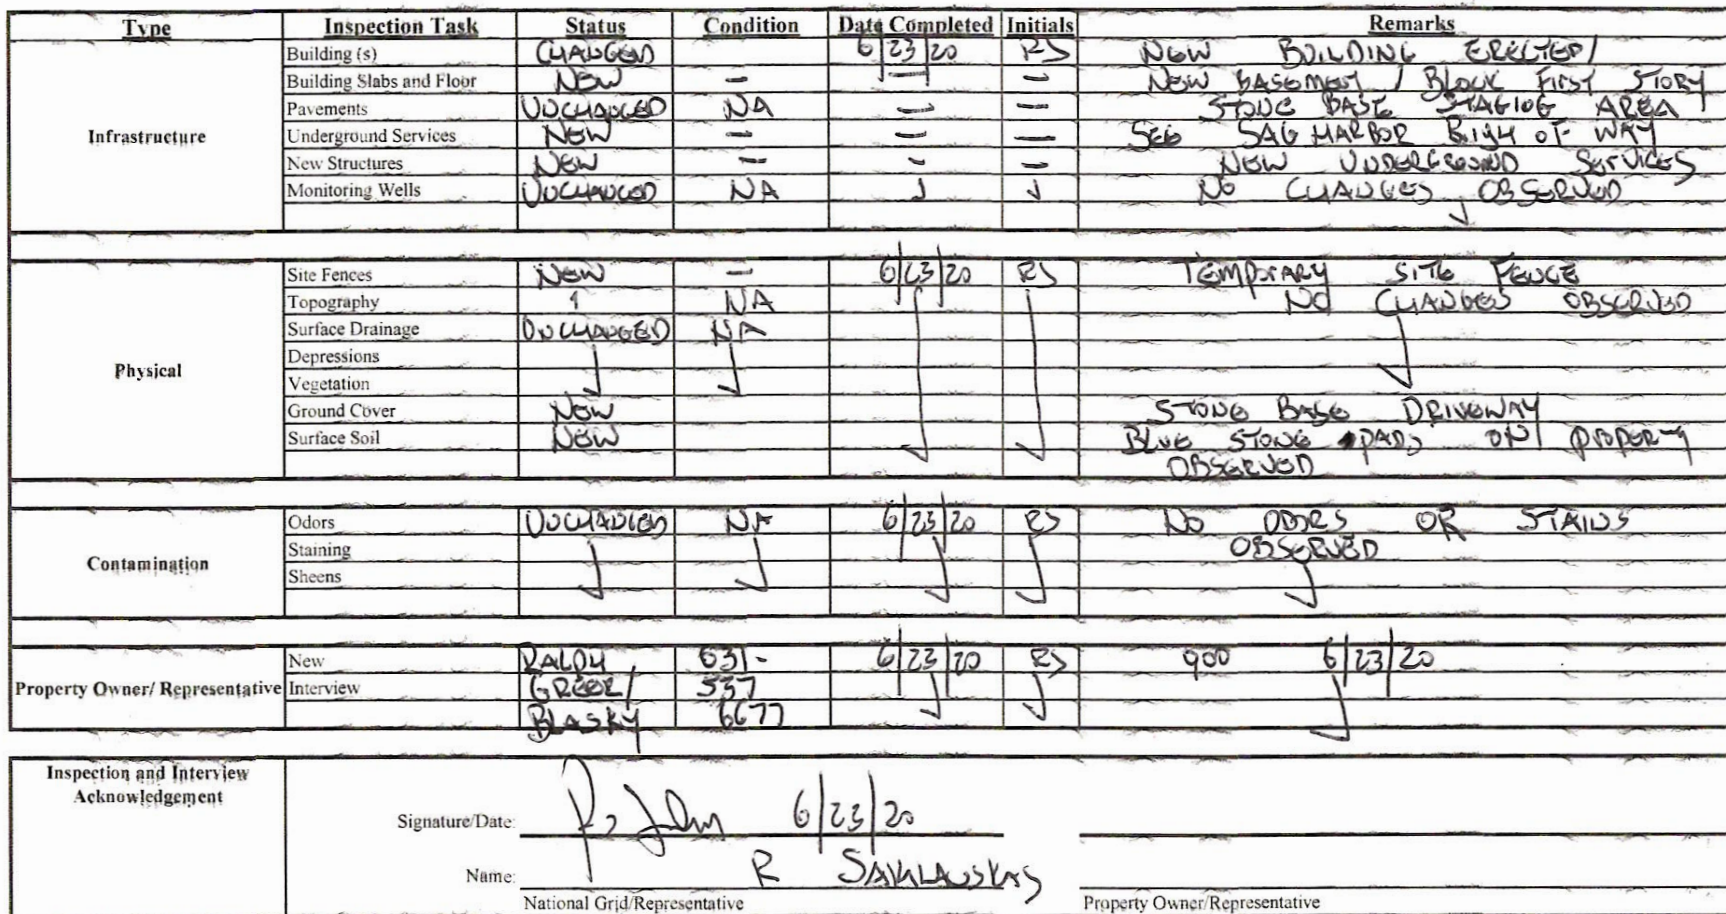 Type Inspection Task Status Condition Date Completed Initials Remarks
Infrastructure
Building (s) CHANGED 6/23/20 RS NEW BUILDING ERECTED/
Building Slabs and Floor NEW — — — NEW BASEMENT / BLOCK FIRST STORY
Pavements UNCHANGED NA — — STONE BASE STAGING AREA
Underground Services NEW — — — SEE SAG HARBOR RIGH OF WAY
New Structures NEW — — — NEW UNDERGROUND SERVICES
Monitoring Wells UNCHANGED NA NO CHANGES OBSERVED
Physical
Site Fences NEW — 6/23/20 RS TEMPORARY SITE FENCE
Topography NA NO CHANGES OBSERVED
Surface Drainage UNCHANGED NA
Depressions
Vegetation
Ground Cover NEW STONE BASE DRIVEWAY
Surface Soil NEW BLUE STONE PADS ON PROPERTY
OBSERVED
Contamination
Odors UNCHANGED NA 6/23/20 RS NO ODORS OR STAINS
Staining OBSERVED
Sheens
Property Owner/ Representative
New RALPH 631- 6/23/20 RS 900 6/23/20
Interview GREER/ 537
BLASKY 6677
Inspection and Interview
Acknowledgement
Signature/Date: 6/23/20
Name: R SAKLAUSKAS
National Grid/Representative Property Owner/Representative